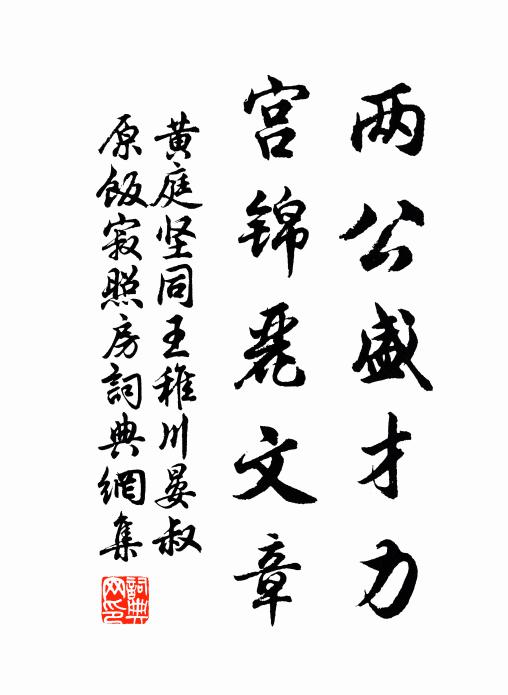 两公盛才力
宫锦丽文章
黄庭坚同王稚川晏叔
原饭寂照房詞典網集
詞典網印